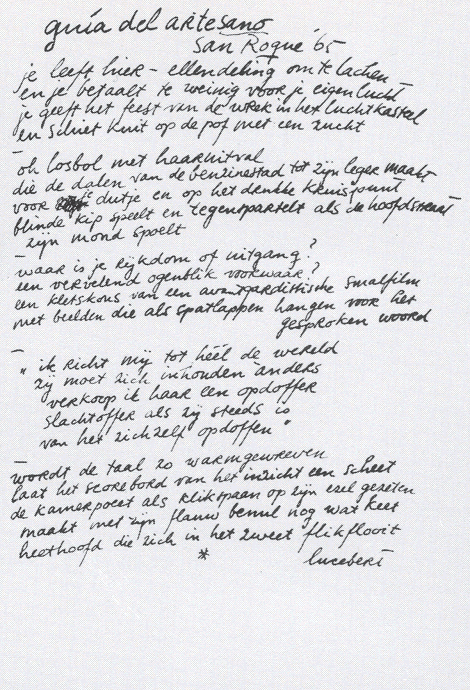 guía del artesano
San Roque '65
je leeft hier – ellendeling om te lachen –
en je betaalt te weinig voor je eigen lucht
je geeft het feest van de vrek in het luchtkasteel
en schiet kuit op de pof met een zucht
–
oh losbol met haaruitval
die de dalen van de benzinestad tot zijn leger maakt
voor dutje en op het drukke kruispunt
blinde kip speelt en tegenspartelt als de hoofdstraat
zijn mond spoelt
–
waar is je rijkdom of uitgang?
een vervelend ogenblik voorwaar?
een kletskous van een avantgardistische smalfilm
met beelden die als spatlappen hangen voor het
gesproken woord
–
"ik richt mij tot héél de wereld
zij moet zich inhouden anders
verkoop ik haar een opdoffer
slachtoffer als zij steeds is
van het zichzelf opdoffen"
–
wordt de taal zo warmgewreven
laat het scorebord van het inzicht een scheet
de kamerpoet als klikspaan op zijn ezel gezeten
maakt met zijn flauw benul nog wat heet
heethoofd die zich in het zweet flikflooit
*
lucebert